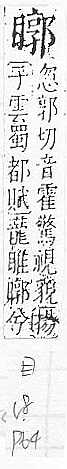 矎
忽郭切音霍驚視貌揚
子雲蜀都賦龍睢矎兮
目
18
P64